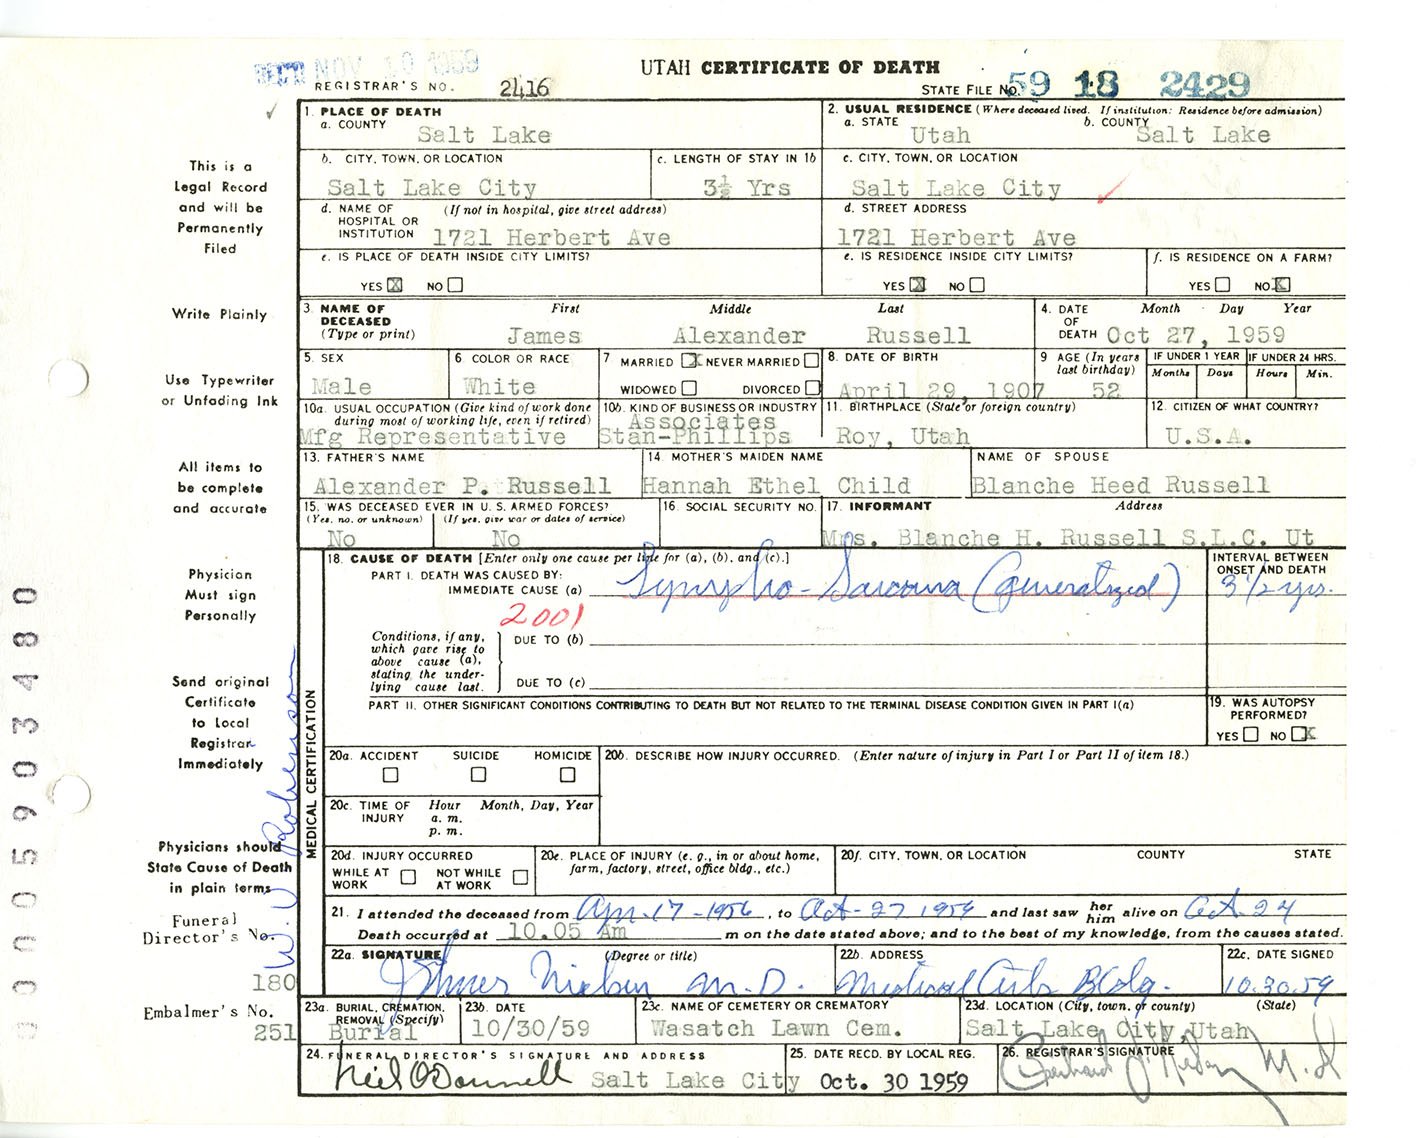 REC'D NOV 10 1959
UTAH CERTIFICATE OF DEATH
REGISTRAR'S NO. 2416
STATE FILE NO. 59 18 2429
This is a
Legal Record
and will be
Permanently
Filed
Write Plainly
Use Typewriter
or Unfading Ink
All items to
be complete
and accurate
Physician
Must sign
Personally
Send original
Certificate
to Local
Registrar
Immediately
Physicians should
State Cause of Death
in plain terms
Funeral
Director's No.
180
Embalmer's No.
251
0005903480
W. V Robinson
1. PLACE OF DEATH
a. COUNTY
Salt Lake
2. USUAL RESIDENCE (Where deceased lived. If institution: Residence before admission)
a. STATE b. COUNTY
Utah Salt Lake
b. CITY, TOWN, OR LOCATION
Salt Lake City
c. LENGTH OF STAY IN 1b
3½ Yrs
c. CITY, TOWN, OR LOCATION
Salt Lake City
d. NAME OF (If not in hospital, give street address)
HOSPITAL OR
INSTITUTION 1721 Herbert Ave
d. STREET ADDRESS
1721 Herbert Ave
e. IS PLACE OF DEATH INSIDE CITY LIMITS?
YES X NO
e. IS RESIDENCE INSIDE CITY LIMITS?
YES X NO
f. IS RESIDENCE ON A FARM?
YES NO X
3. NAME OF First Middle Last
DECEASED
(Type or print) James Alexander Russell
4. DATE Month Day Year
OF
DEATH Oct 27, 1959
5. SEX
Male
6 COLOR OR RACE
White
7 MARRIED X NEVER MARRIED
WIDOWED DIVORCED
8. DATE OF BIRTH
April 29, 1907
9 AGE (In years
last birthday)
52
IF UNDER 1 YEAR IF UNDER 24 HRS.
Months Days Hours Min.
10a. USUAL OCCUPATION (Give kind of work done
during most of working life, even if retired)
Mfg Representative
10b. KIND OF BUSINESS OR INDUSTRY
Associates
Stan-Phillips
11. BIRTHPLACE (State or foreign country)
Roy, Utah
12. CITIZEN OF WHAT COUNTRY?
U.S.A.
13. FATHER'S NAME
Alexander P. Russell
14. MOTHER'S MAIDEN NAME
Hannah Ethel Child
NAME OF SPOUSE
Blanche Heed Russell
15. WAS DECEASED EVER IN U.S. ARMED FORCES?
(Yes, no, or unknown) (If yes, give war or dates of service)
No No
16. SOCIAL SECURITY NO.
17. INFORMANT Address
Mrs. Blanche H. Russell S.L.C. Ut
MEDICAL CERTIFICATION
18. CAUSE OF DEATH [Enter only one cause per line for (a), (b), and (c).]
INTERVAL BETWEEN
ONSET AND DEATH
PART I. DEATH WAS CAUSED BY:
IMMEDIATE CAUSE (a) Lympho-Sarcoma (generalized) 3 1/2 yrs.
2001
Conditions, if any,
which gave rise to
above cause (a),
stating the under-
lying cause last.
DUE TO (b)
DUE TO (c)
PART II. OTHER SIGNIFICANT CONDITIONS CONTRIBUTING TO DEATH BUT NOT RELATED TO THE TERMINAL DISEASE CONDITION GIVEN IN PART I(a)
19. WAS AUTOPSY
PERFORMED?
YES NO X
20a. ACCIDENT SUICIDE HOMICIDE
20b. DESCRIBE HOW INJURY OCCURRED. (Enter nature of injury in Part I or Part II of item 18.)
20c. TIME OF Hour Month, Day, Year
INJURY a. m.
p. m.
20d. INJURY OCCURRED
WHILE AT NOT WHILE
WORK AT WORK
20e. PLACE OF INJURY (e. g., in or about home,
farm, factory, street, office bldg., etc.)
20f. CITY, TOWN, OR LOCATION COUNTY STATE
21. I attended the deceased from Apr.-17-1956, to Oct-27 1959 and last saw her him alive on Oct-24
Death occurred at 10.05 Am m on the date stated above; and to the best of my knowledge, from the causes stated.
22a. SIGNATURE (Degree or title)
M.D.
22b. ADDRESS
Medical Arts Bldg.
22c. DATE SIGNED
10.30.59
23a. BURIAL, CREMATION,
REMOVAL (Specify)
Burial
23b. DATE
10/30/59
23c. NAME OF CEMETERY OR CREMATORY
Wasatch Lawn Cem.
23d. LOCATION (City, town, or county) (State)
Salt Lake City, Utah
24. FUNERAL DIRECTOR'S SIGNATURE AND ADDRESS
Neil O'Donnell Salt Lake City
25. DATE RECD. BY LOCAL REG.
Oct. 30 1959
26. REGISTRAR'S SIGNATURE
M.D.